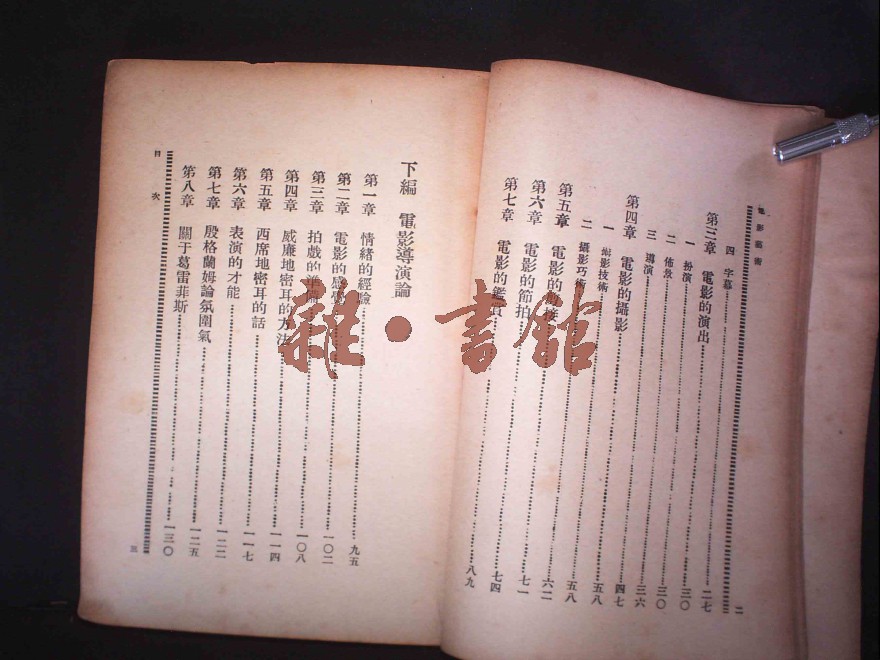 電影藝術
二
四 字幕 二七
第三章 電影的演出 三〇
一 扮演 三〇
二 佈景 三六
三 導演 四七
第四章 電影的攝影 五八
一 攝影技術 五八
二 攝影巧術 六二
第五章 電影的銜接 七一
第六章 電影的節拍 七四
第七章 電影的鑑賞 八九
下編 電影導演論
第一章 情緒的經驗 九五
第二章 電影的感覺 一〇二
第三章 拍戲的準備 一〇八
第四章 威廉地密耳的方法 一一四
第五章 西席地密耳的話 一一七
第六章 表演的才能 一二二
第七章 殷格蘭姆論氛圍氣 一二五
第八章 關于葛雷菲斯 一三〇
目次
三
雜·書館